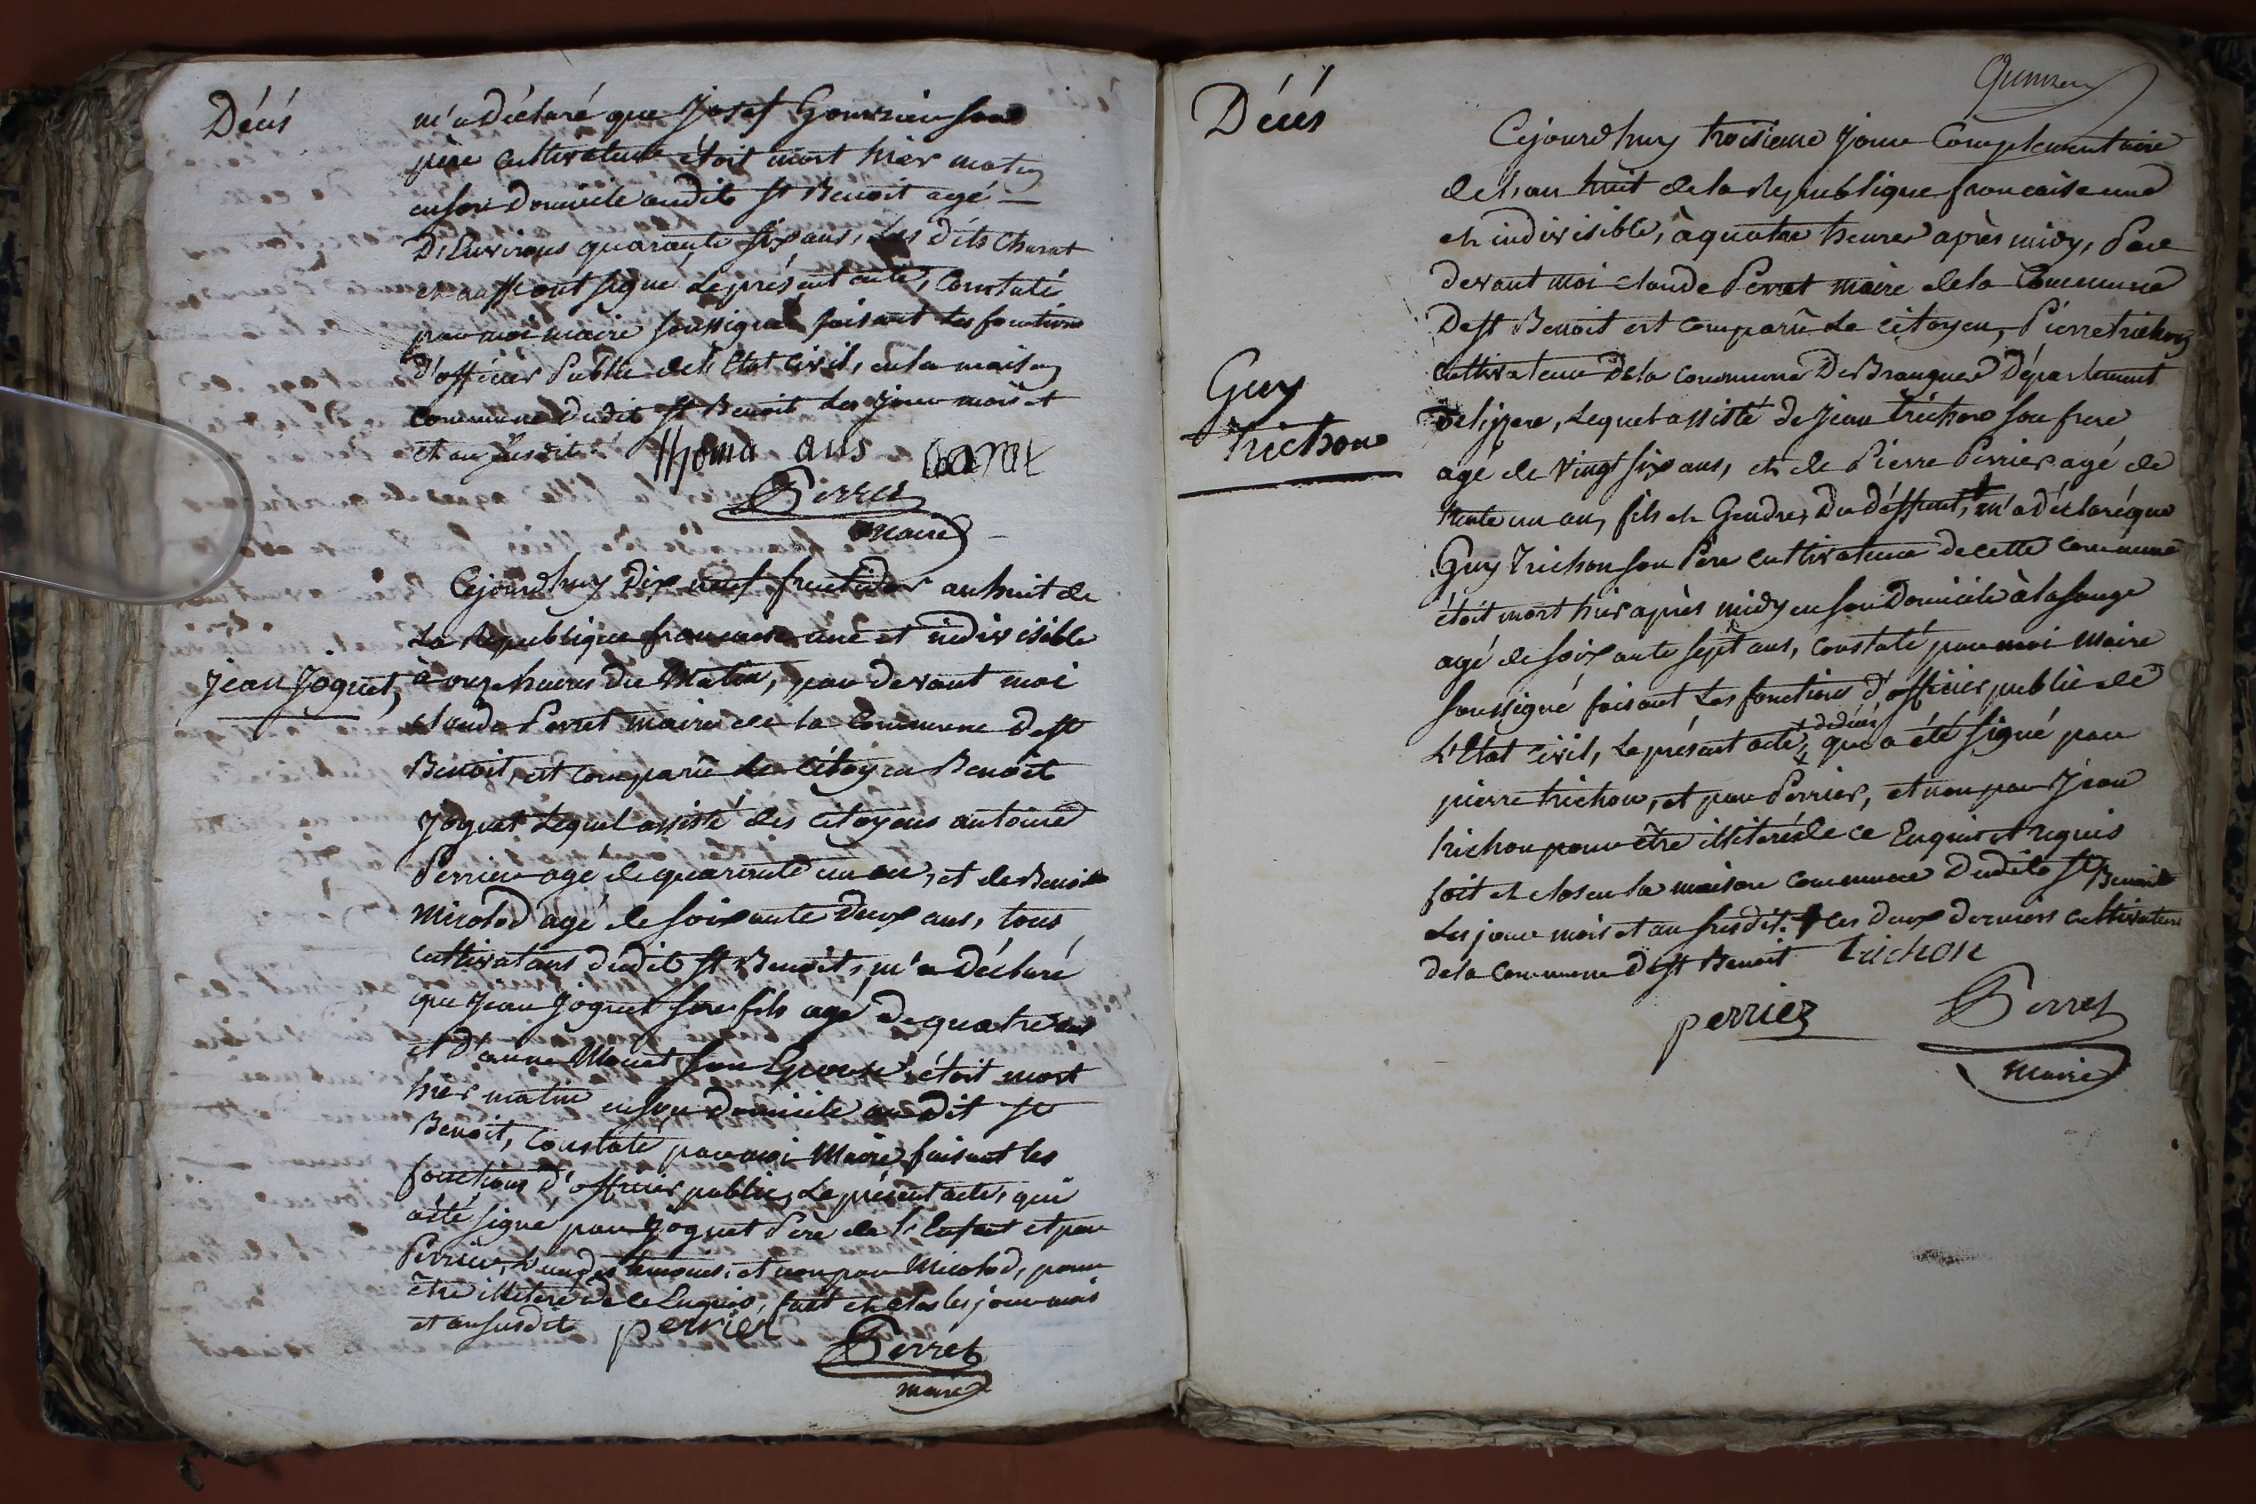 Décés
m'a Déclaré que Josef Gourrieu son
père cultivateur étoit mort hier matin
en son Domicile audit St Benoit agé
D'Environs quarante six ans, Les dits Charat
et ans ont signé Le présent acte, Constaté
par moi maire soussigné faisant Les fonctions
d'officier Public de l'Etat Civil, en la maison
commune dudit St Benoit Les jour mois et
et an susdit
thoma ans carat
Perret
maire
Cejourd'huy Dix neuf fructidor an huit de
La République francaise une et indivisible
Jean Joguet,
à onze heures du Matin, par devant moi
claude Perret maire de la Commune de St
Benoit, est comparû Le citoyen Benoit
Joguet Lequel assisté des citoyens antoine
Perrier agé de quarente un an, et de Benoit
Micolod agé de soixante Deux ans, tous
cultivateurs dudit St Benoit, m'a Déclaré
que Jean Joguet son fils agé de quatre ans
et d'anne Monet son Epouse, étoit mort
hier matin en son domicile au dit St
Benoit, Constaté par moi Maire faisant les
fonctions d'officier public, Le présent acte, qui
a été signé par Joguet Père de l'Enfant et par
Perrier, L'un des temoins, et non par Micolod, pour
être illiteré de ce Enquis, fait et clos les jour mois
et an susdit
perrier
Perret
maire
Décés
Cejourd'huy troisieme Jour Complementaire
de l'an huit de la République francaise une
et indivisible, à quatre heures après midy, Par
devant moi claude Perret maire de la Commune
De St Benoit est comparû Le citoyen, Pierre trichon
cultivateur De la commune De Brangues Département
Guy
trichon
de l'izere, Lequel assisté de Jean trichon son frere
agé de vingt six ans, et de Pierre Perrier agé de
trente un an, fils et Gendre, Du déffunt, m'a Déclaré que
Guy trichon son Père cultivateur de cette commune
étoit mort hier après midy en son Domicile à la sauge
agé de soixante sept ans, Constaté par moi Maire
soussigné faisant Les fonctions d'officier public de
L'Etat civil, Le présent acte, de décès, qui a été signé par
pierre trichon, et par Perrier, et non par Jean
trichon pour être illiteré de ce Enquis et requis
fait et clos en la maison commune dudit St Benoit
Les jour mois et an susdit. ces deux derniers cultivateurs
de la commune De St Benoit
trichon
perrier
Perret
maire